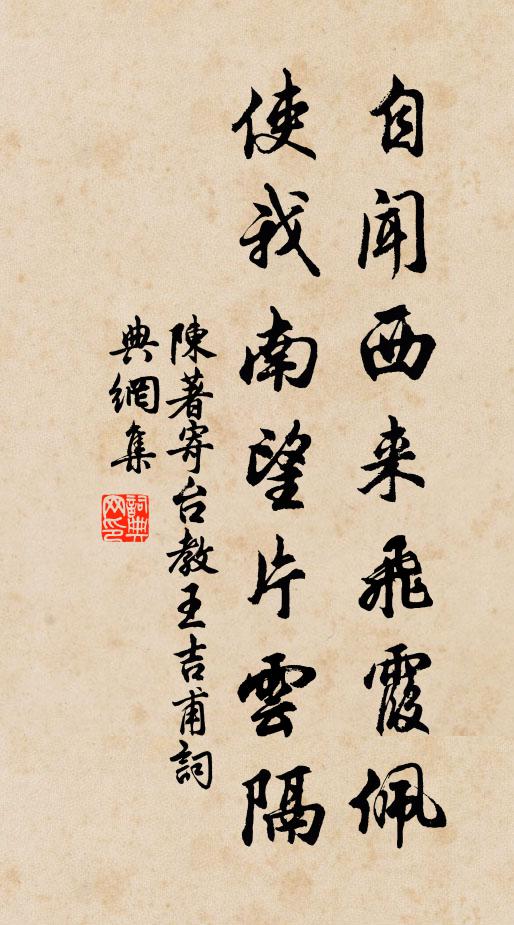 自聞西来飛霞佩
使我南望片雲隔
陳著寄台教王吉甫詞
典網集
詞典
网印